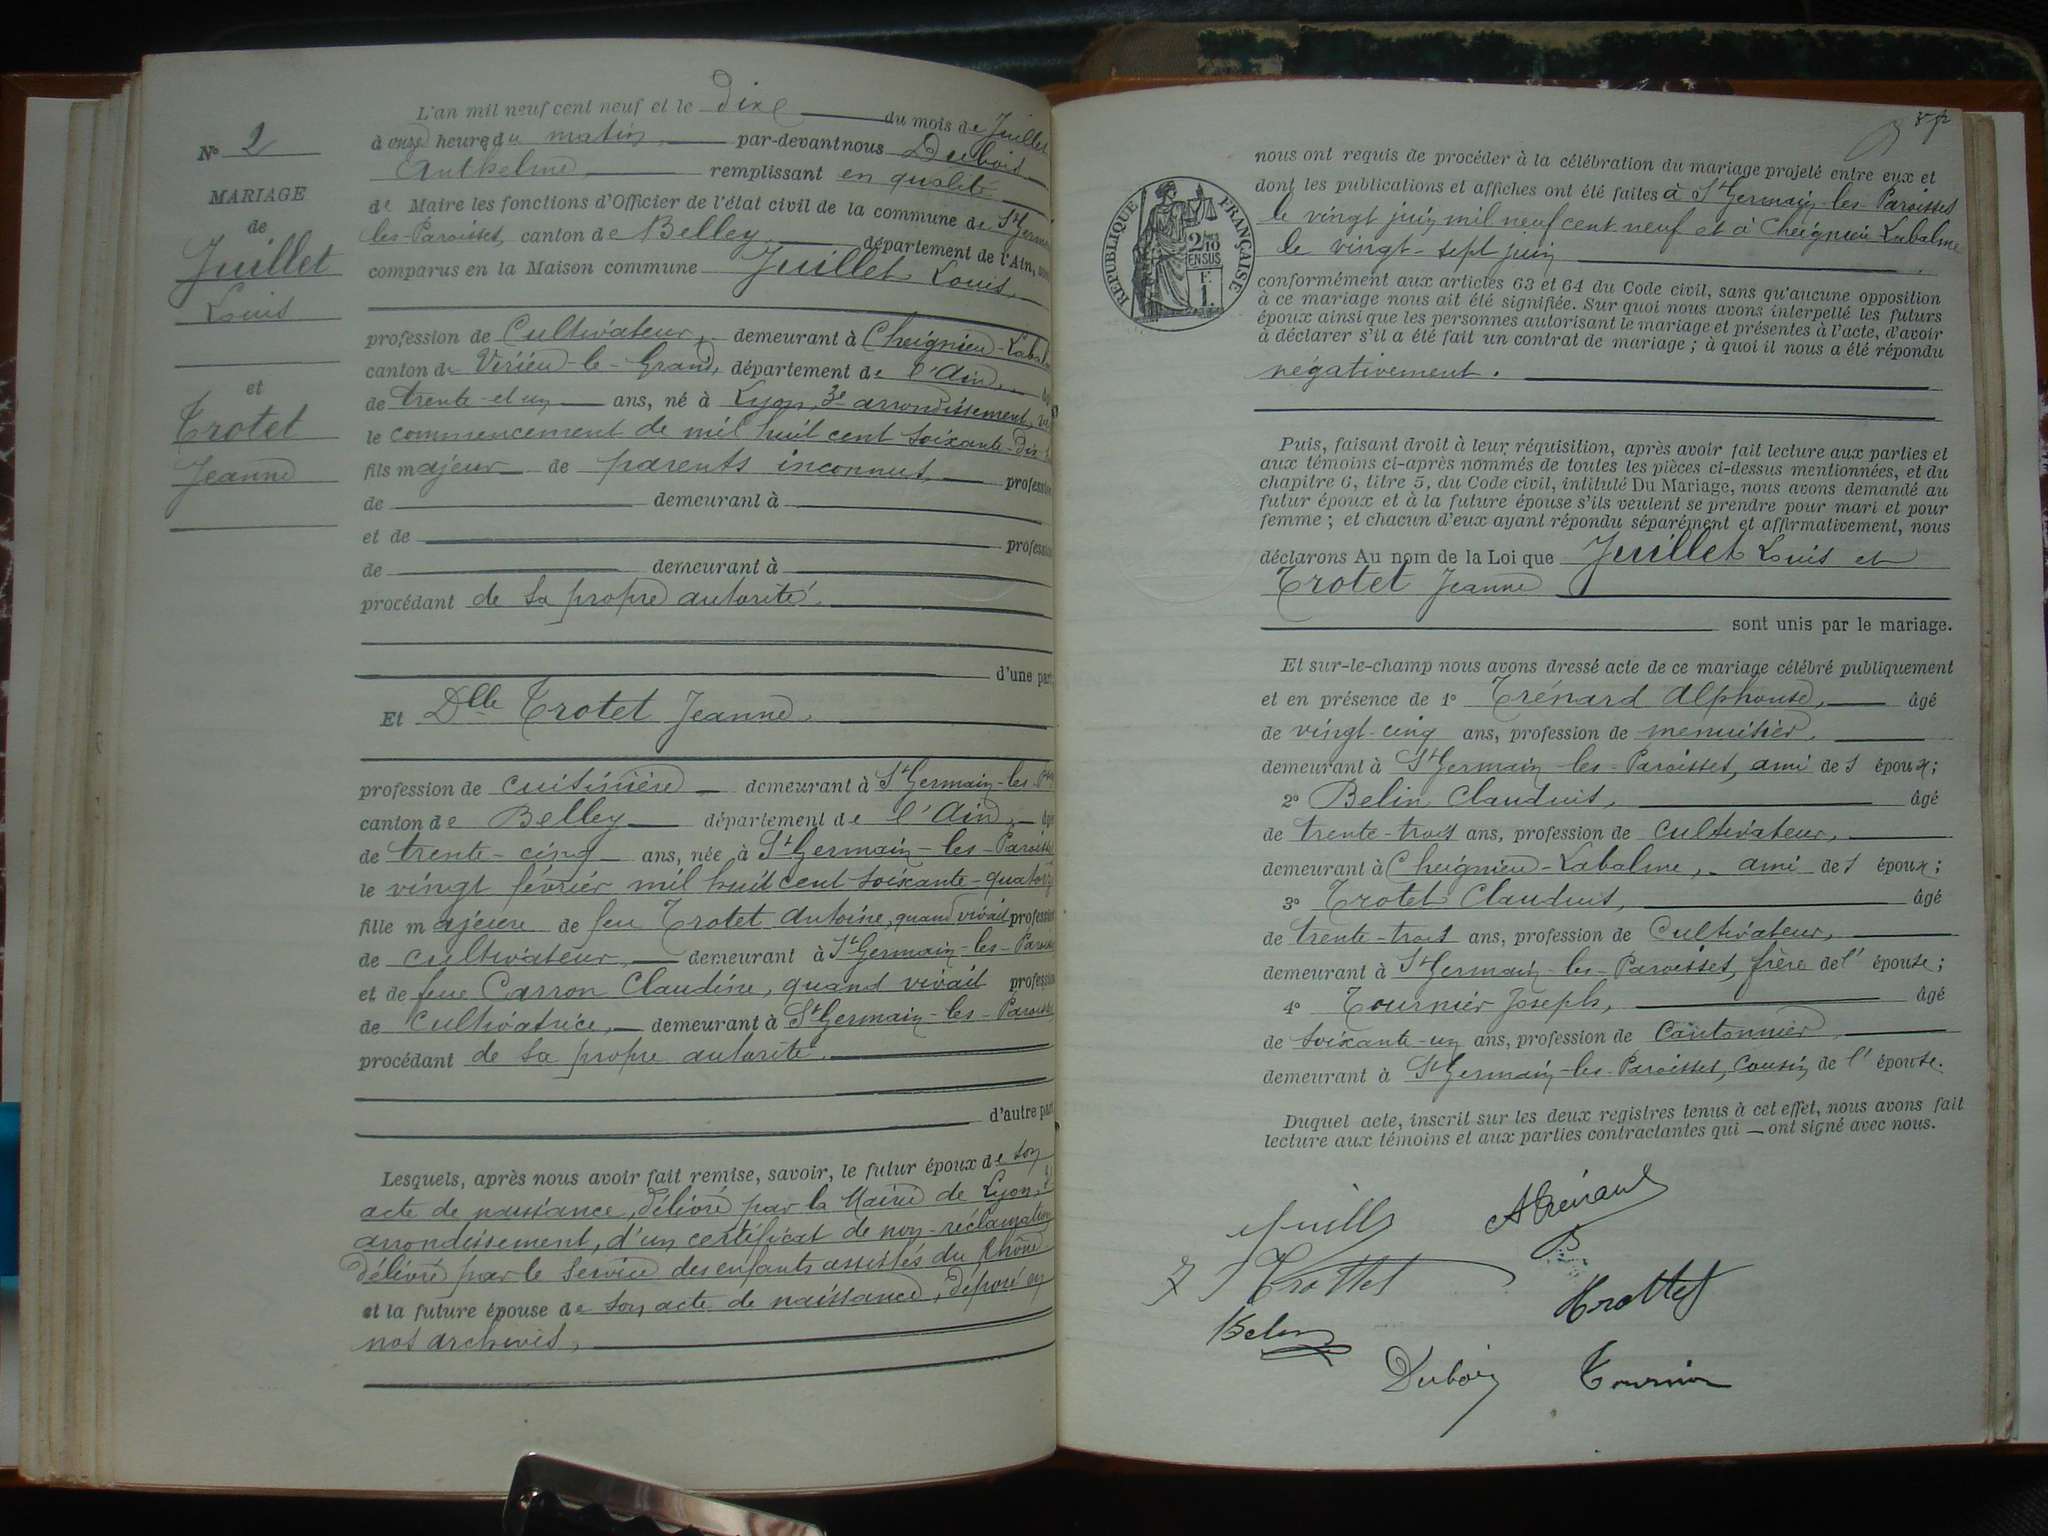 N° 2
MARIAGE
de
Juillet
Louis
et
Trotet
Jeanne
L'an mil neuf cent neuf et le dix du mois de Juillet
à onze heure du matin par-devant nous Dubois
Anthelme remplissant en qualité
de Maire les fonctions d'Officier de l'état civil de la commune de St Germain
les-Paroisses, canton de Belley département de l'Ain, sont
comparus en la Maison commune Juillet Louis,
profession de Cultivateur, demeurant à Cheignieu-Labalme
canton de Virieu-le-Grand, département de l'Ain,
de trente-et-un ans, né à Lyon, 3e arrondissement,
le commencement de mil huit cent soixante-dix
fils majeur de parents inconnus, profession
de demeurant à
et de profession
de demeurant à
procédant de sa propre autorité.
d'une part
Et Dlle Trotet Jeanne,
profession de cuisinière demeurant à St Germain-les-
canton de Belley département de l'Ain, âgée
de trente-cinq ans, née à St Germain-les-Paroisses
le vingt février mil huit cent soixante-quatorze
fille majeure de feu Trotet Antoine, quand vivait profession
de cultivateur, demeurant à St Germain-les-Paroisses
et de feue Carron Claudine, quand vivait profession
de cultivatrice, demeurant à St Germain-les-Paroisses
procédant de sa propre autorité.
d'autre part
Lesquels, après nous avoir fait remise, savoir, le futur époux de son
acte de naissance, délivré par la Mairie de Lyon,
arrondissement, d'un certificat de non-réclamation
délivré par le Service des enfants assistés du Rhône
et la future épouse de son acte de naissance, déposé en
nos archives,
RÉPUBLIQUE FRANÇAISE
2/10
EN SUS
F.
1.
nous ont requis de procéder à la célébration du mariage projeté entre eux et
dont les publications et affiches ont été faites à St Germain-les-Paroisses
le vingt juin mil neuf cent neuf et à Cheignieu Labalme
le vingt-sept juin
conformément aux articles 63 et 64 du Code civil, sans qu'aucune opposition
à ce mariage nous ait été signifiée. Sur quoi nous avons interpellé les futurs
époux ainsi que les personnes autorisant le mariage et présentes à l'acte, d'avoir
à déclarer s'il a été fait un contrat de mariage ; à quoi il nous a été répondu
négativement.
Puis, faisant droit à leur réquisition, après avoir fait lecture aux parties et
aux témoins ci-après nommés de toutes les pièces ci-dessus mentionnées, et du
chapitre 6, titre 5, du Code civil, intitulé Du Mariage, nous avons demandé au
futur époux et à la future épouse s'ils veulent se prendre pour mari et pour
femme ; et chacun d'eux ayant répondu séparément et affirmativement, nous
déclarons Au nom de la Loi que Juillet Louis et
Trotet Jeanne
sont unis par le mariage.
Et sur-le-champ nous avons dressé acte de ce mariage célébré publiquement
et en présence de 1° Trénard Alphonse, âgé
de vingt-cinq ans, profession de menuisier,
demeurant à St Germain-les-Paroisses, ami des époux ;
2° Belin Claudius, âgé
de trente-trois ans, profession de cultivateur,
demeurant à Cheignieu-Labalme, ami des époux ;
3° Trotet Claudius, âgé
de trente-trois ans, profession de Cultivateur,
demeurant à St Germain-les-Paroisses, frère de l'épouse ;
4° Tournier Joseph, âgé
de soixante-un ans, profession de Cantonnier,
demeurant à St Germain-les-Paroisses, cousin de l'épouse.
Duquel acte, inscrit sur les deux registres tenus à cet effet, nous avons fait
lecture aux témoins et aux parties contractantes qui ont signé avec nous.
Juillet ATrénard
J Trottet Trottet
Belin
Dubois Tournier